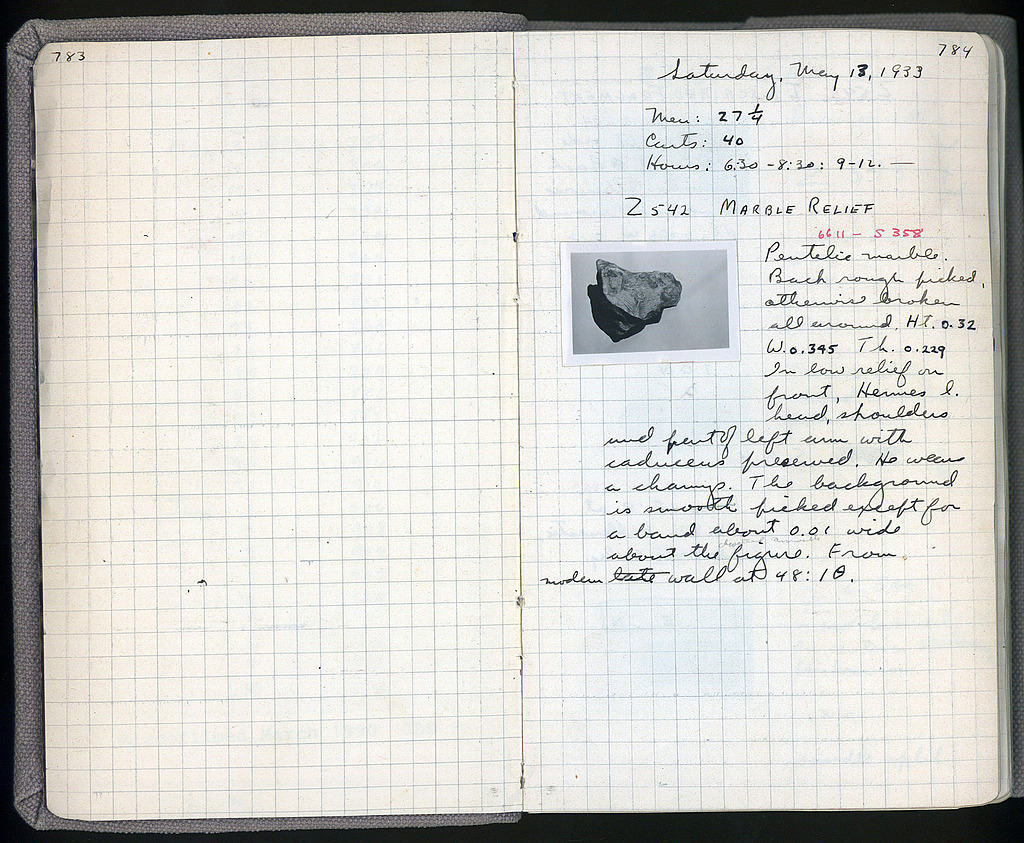 783
784
Saturday, May 13, 1933
Men: 27 1/4
Carts: 40
Hours: 6:30 - 8:30: 9-12. —
Z 542 MARBLE RELIEF
6611 - S 358
Pentelic marble.
Back rough picked,
otherwise broken
all around. Ht. 0.32
W. 0.345 Th. 0.229
In low relief on
front, Hermes l.
head, shoulders
and part of left arm with
caduceus preserved. He wears
a chamys. The background
is smooth picked except for
a band about 0.01 wide
about the figure. From
modern late wall at 48:1Θ.